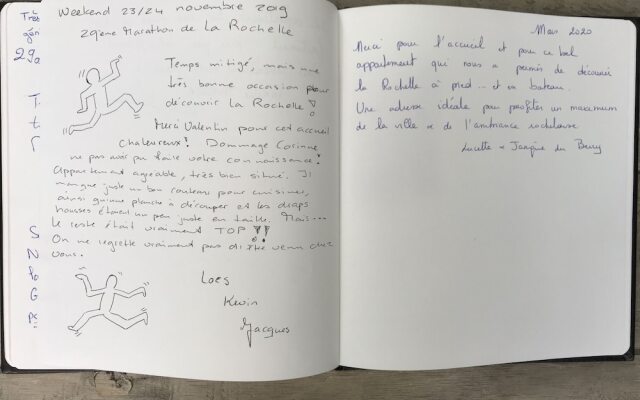 Weekend 23/24 novembre 2019
29ème Marathon de La Rochelle
Temps mitigé, mais une
très bonne occasion pour
découvrir La Rochelle !
Merci Valentin pour cet accueil
chaleureux! Dommage Corinne
ne pas avoir pu faire votre connaissance!
Appartement agréable, très bien situé. Il
manque juste un bon couteau pour cuisiner,
ainsi qu'une planche à découper et les draps
housses étaient un peu juste en taille. Mais...
le reste était vraiment TOP !!
On ne regrette vraiment pas d'être venu chez
vous.
Loes
Kevin
Jacques
Mars 2020
Merci pour l'accueil et pour ce bel
appartement qui nous a permis de découvrir
la Rochelle à pied... et en bateau.
Une adresse idéale pour profiter un maximum
de la ville et de l'ambiance rochelaise.
Lucette